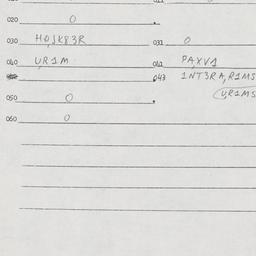 020 0
030 HOJK83R 031 0
040 UR1M 041 PA,XV1
043 1NT3RA,R1MS
U,R1MS
050 0
060 0